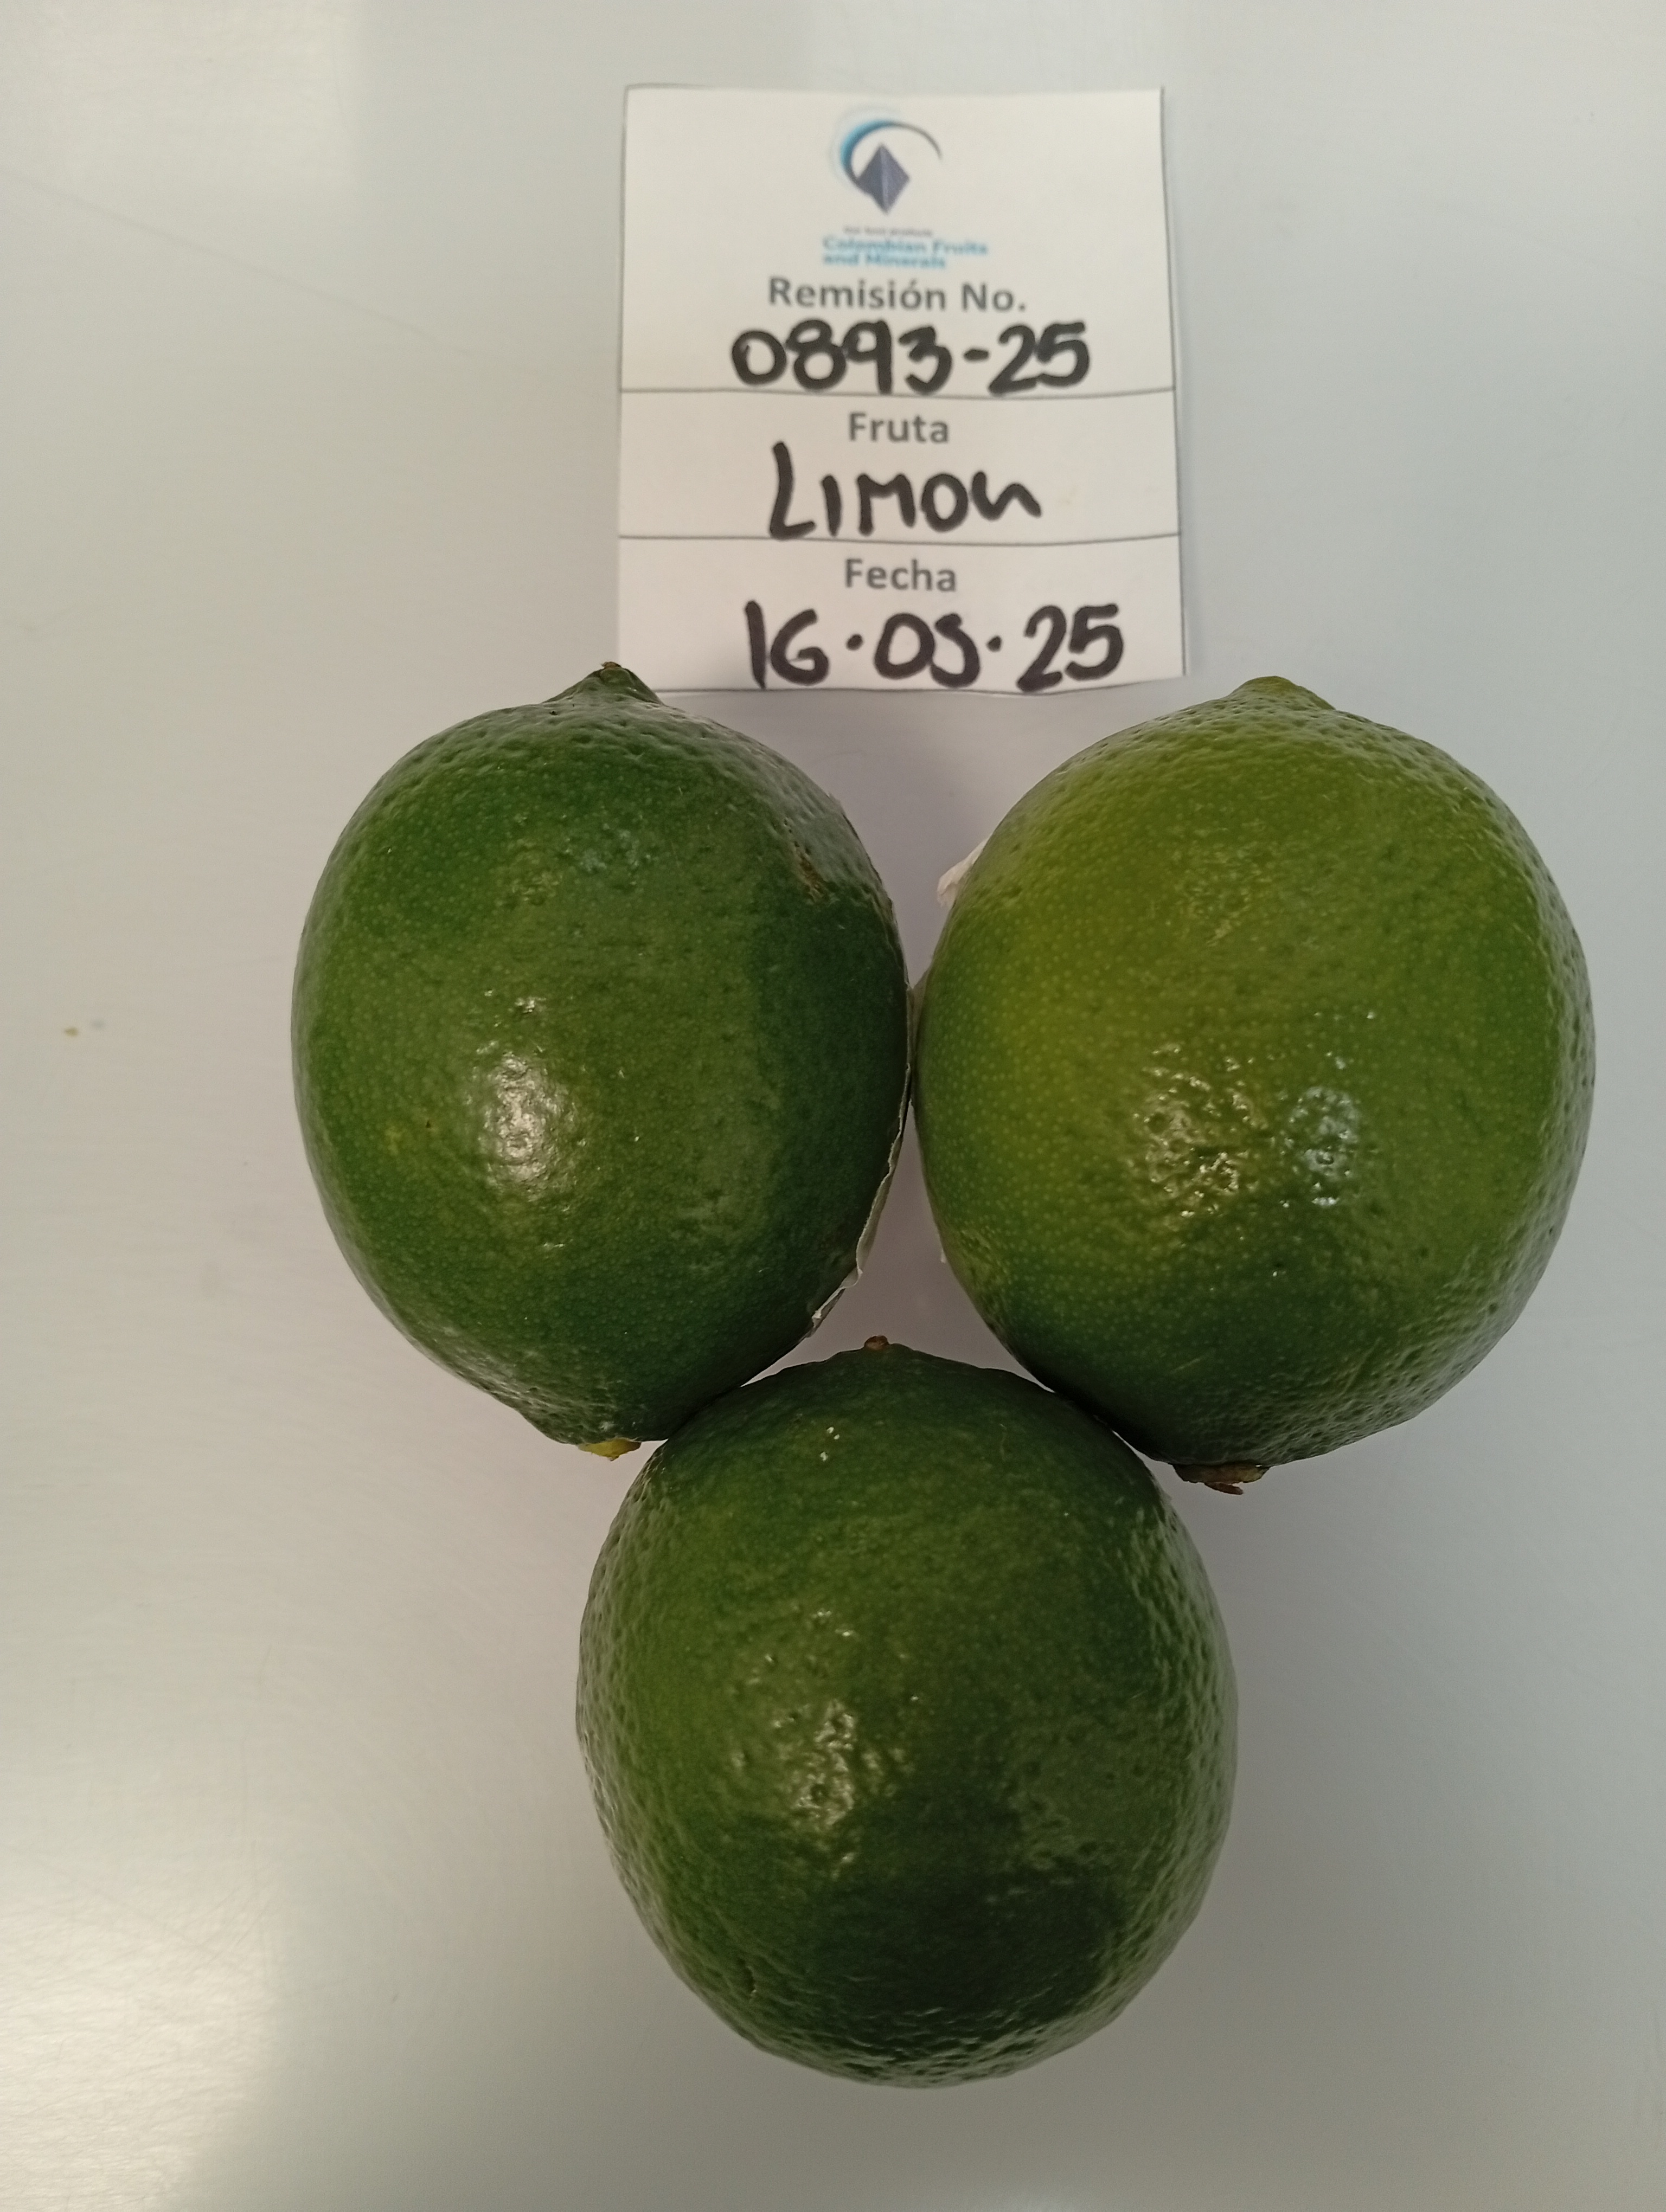 Colombian Fruits
and Minerals
Remisión No.
0893-25
Fruta
LIMON
Fecha
16.05.25